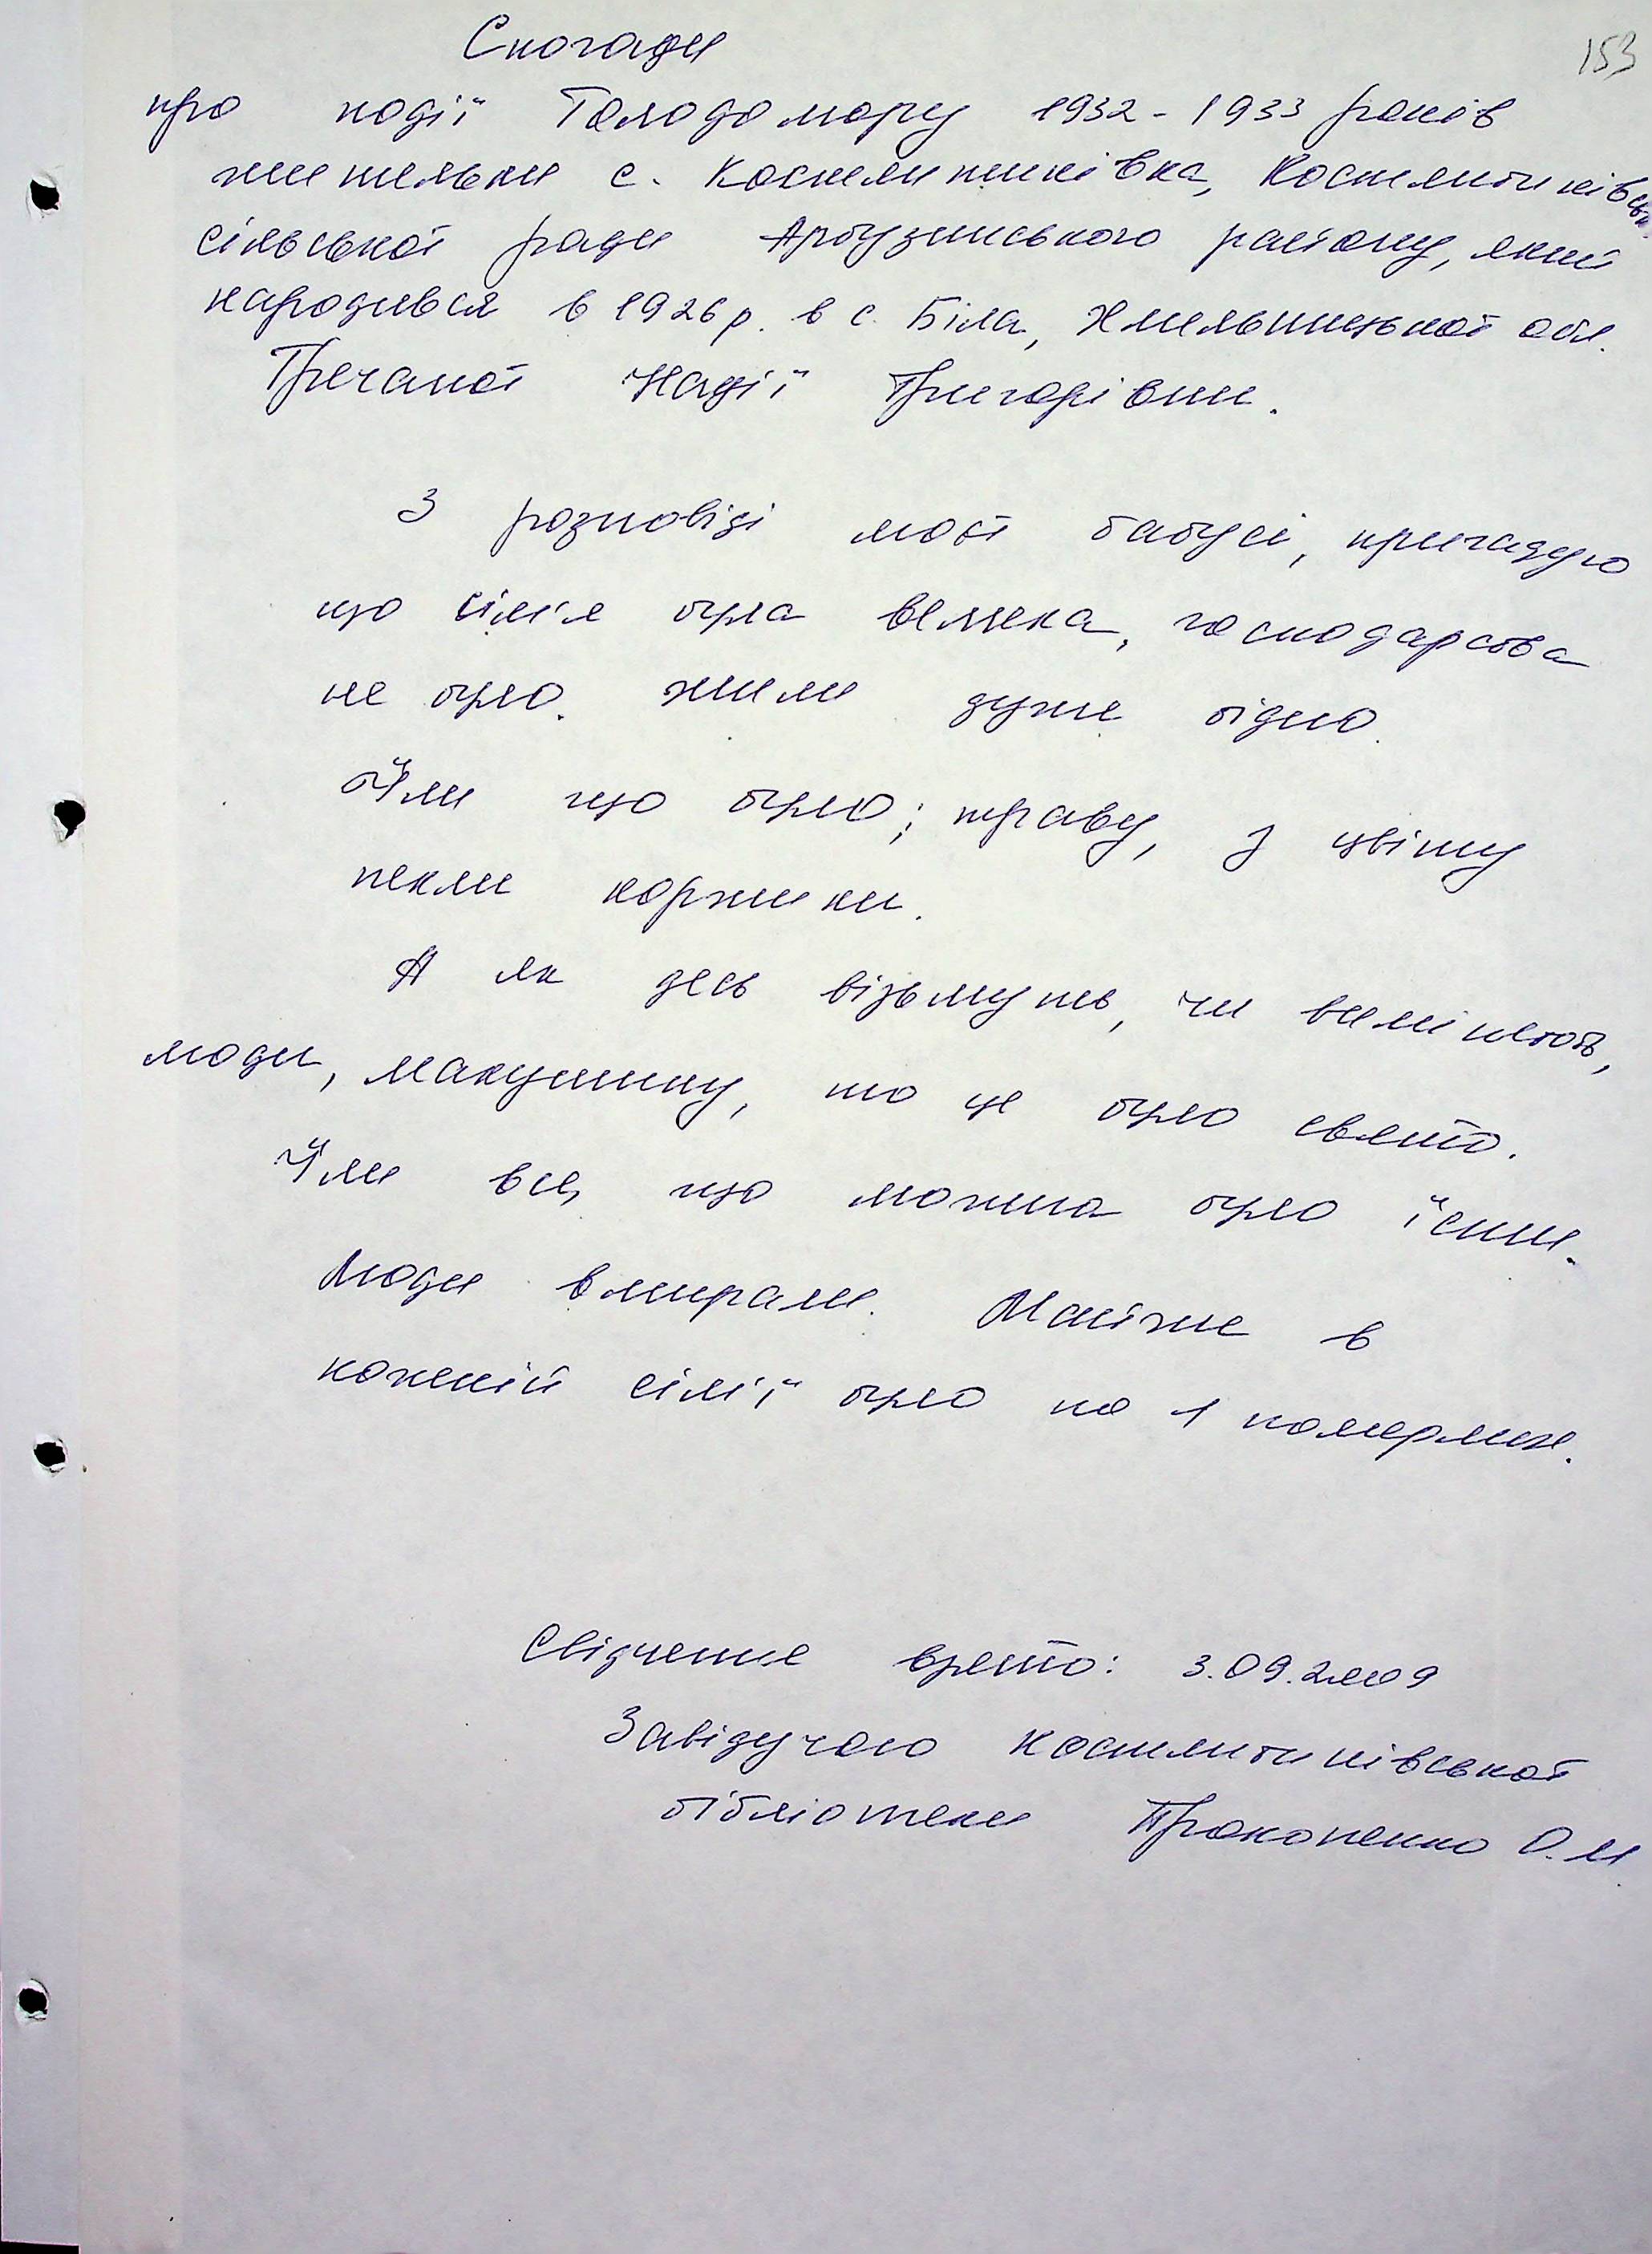 Спогади
153
про події Голодомору 1932-1933 років
жительки с. Костянтинівка, Костянтинівськ.
сільської ради Арбузинського району, який
народився в 1926 р. в с. Біла, Хмельницької обл.
Гречаної Надії Григорівни.
З розповіді моєї бабусі, пригадую
що сім'я була велика, господарства
не було. Жили дуже бідно.
Їли що було; траву, з цвіту
пекли коржики.
А як десь візьмуть, чи виміняють,
люди, макушину, то це було свято.
Їли все, що можна було їсти.
Люди вмирали. Майже в
кожній сім'ї було по 1 померлих.
Свідчення взято: 3.09.2009
Завідучою Костянтинівської
бібліотеки Прокопенко О.М